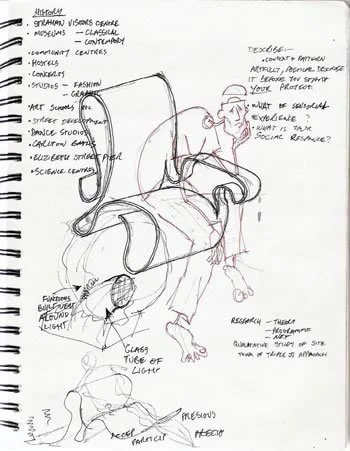 HISTORY
• STRAHAN VISITORS CENTRE
• MUSEUMS – CLASSICAL
– CONTEMPORY
• COMMUNITY CENTRES
• HOSTELS
• CONCERTS
• STUDIOS – FASHION
– GRAPHIC
• ART SCHOOLS ETC
• STREET DEVELOPMENT
• DANCE STUDIOS
• CARLTON BATHS
• ELIZABETH STREET PIER
• SCIENCE CENTRES
DESCRIBE:–
• CONTEXT PATTERN
ARTFULLY, POETICAL DESCRIBE
IT BEFORE YOU START
YOUR PROJECT.
• WHAT OF SENSORIAL
EXPERIENCE?
• WHAT IS YOUR
SOCIAL RELEVANCE?
FUNCTIONS
BUILT
AROUND
LIGHT
GLASS
TUBE OF
LIGHT
RESEARCH – THEORY
– PROGRAMME
– NET
QUALITATIVE STUDY OF SITE
APPROACH
PRECIOUS